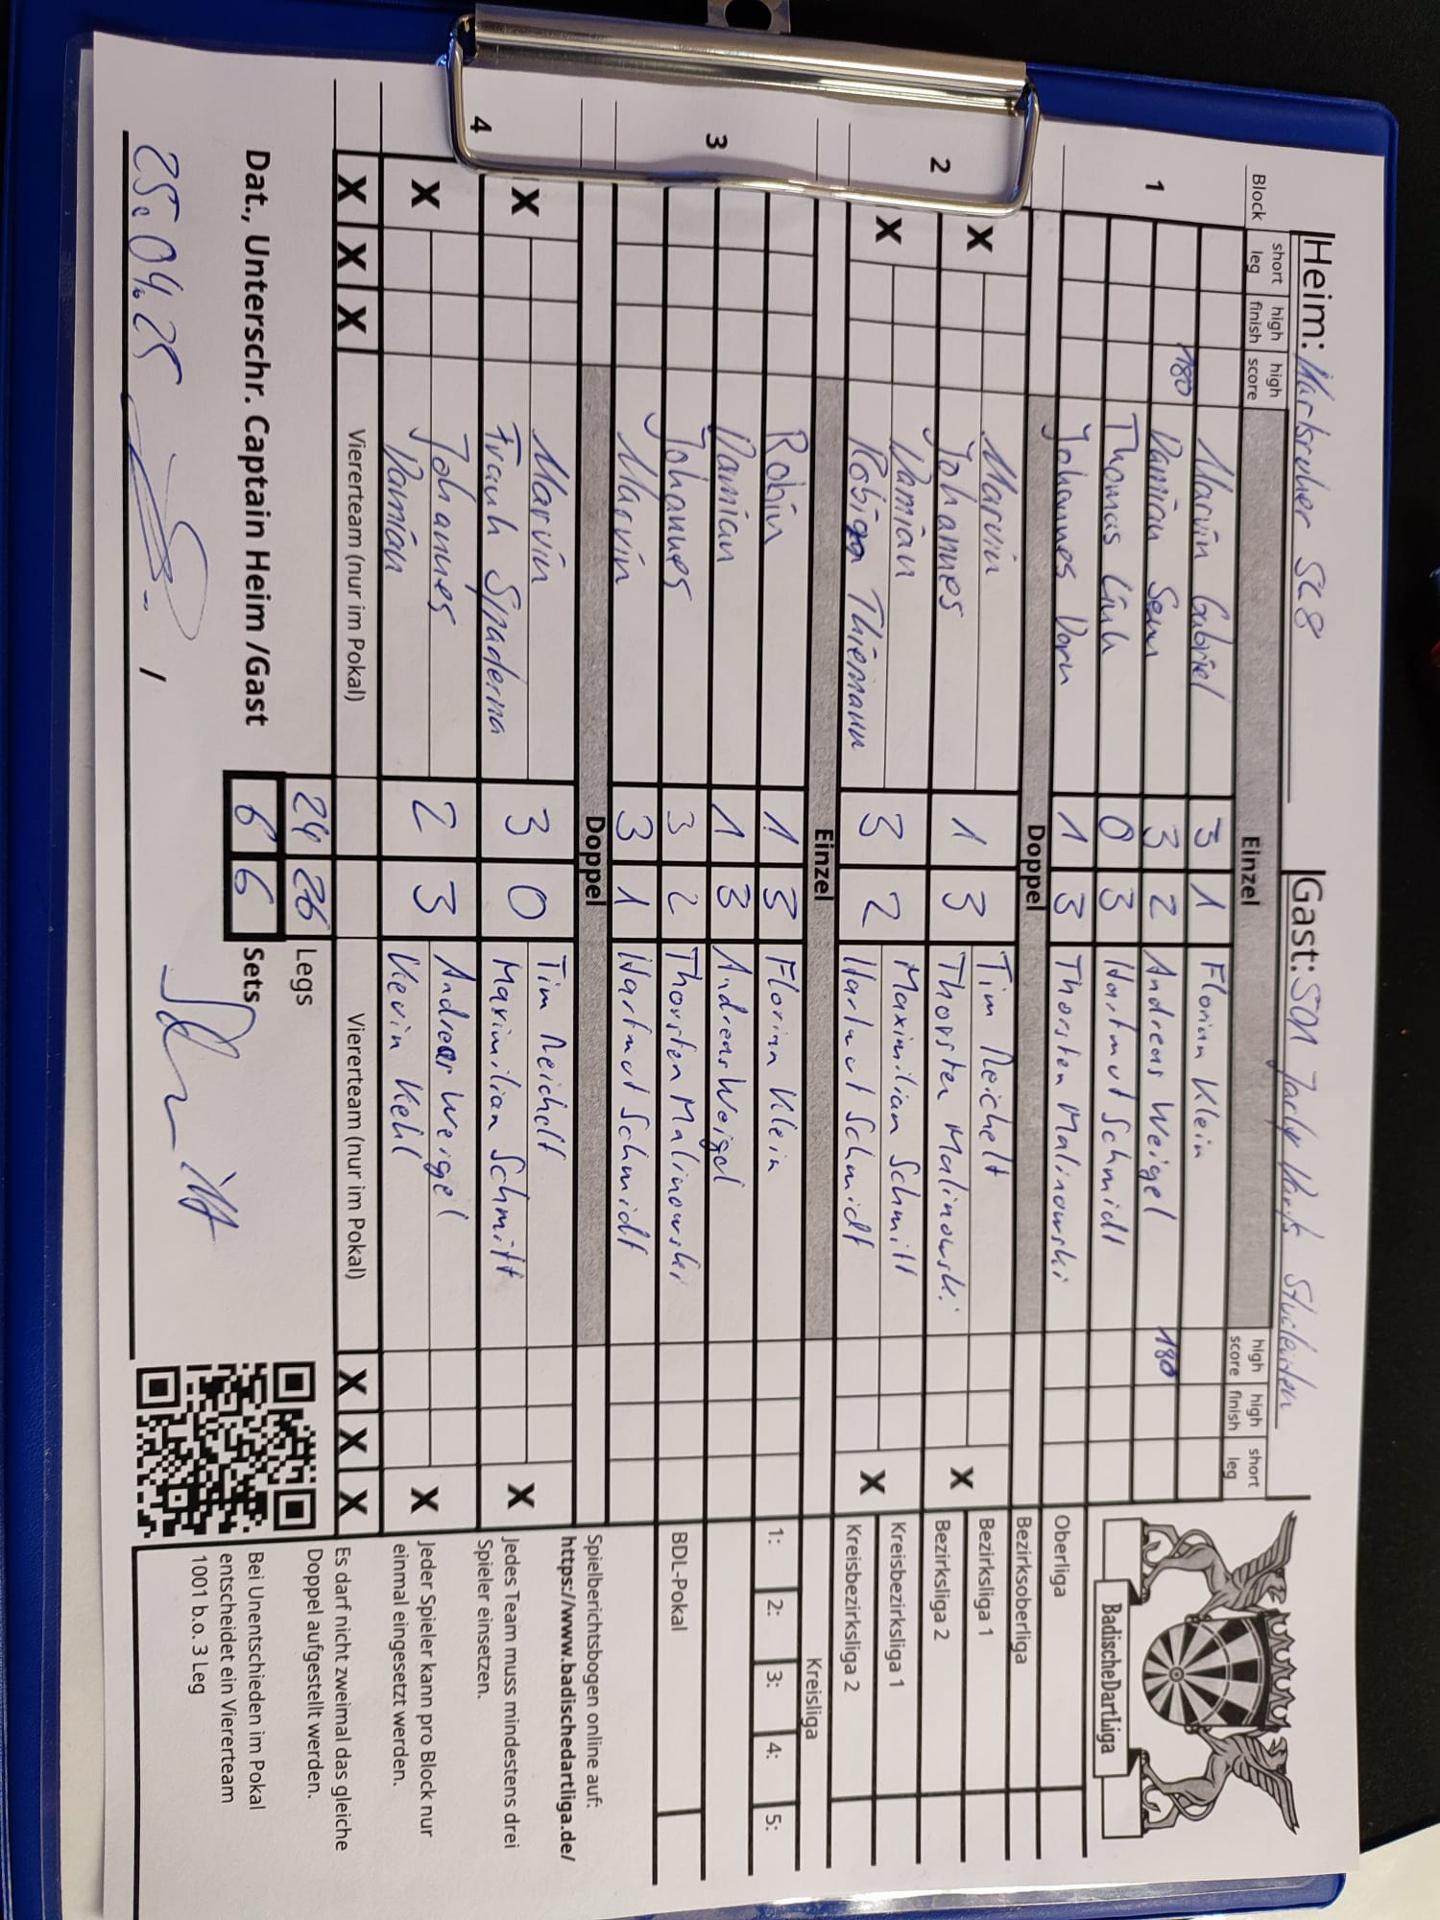 Heim: Karlsruher SC 8 Gast: 501 Darts Studenten
Block short leg high finish high score Einzel high score high finish short leg
1 Marvin Gabriel 3 1 Florian Klein
180 Damian 3 2 Andreas Weigel 180
Thomas Link 0 3 Hartmut Schmidt
Johannes Dorn 1 3 Thorsten Malinowski
Doppel
2 X Marvin 1 3 Tim Reichelt X
Johannes Thorsten Malinowski
X Damian 3 2 Maximilian Schmitt X
Robin Thiemann Hartmut Schmidt
Einzel
3 Robin 1 3 Florian Klein
Damian 1 3 Andreas Weigel
Johannes 3 2 Thorsten Malinowski
Marvin 3 1 Hartmut Schmidt
Doppel
4 X Marvin 3 0 Tim Reichelt X
Frank Spaderna Maximilian Schmitt
X Johannes 2 3 Andreas Weigel X
Damian Kevin Kehl
X X X Viererteam (nur im Pokal) Viererteam (nur im Pokal) X X X
24 26 Legs
Dat., Unterschr. Captain Heim /Gast 6 6 Sets
25.04.25 /
BadischeDartLiga
Oberliga
Bezirksoberliga
Bezirksliga 1
Bezirksliga 2
Kreisbezirksliga 1
Kreisbezirksliga 2
Kreisliga
1: 2: 3: 4: 5:
BDL-Pokal
Spielberichtsbogen online auf:
https://www.badischedartliga.de/
Jedes Team muss mindestens drei
Spieler einsetzen.
Jeder Spieler kann pro Block nur
einmal eingesetzt werden.
Es darf nicht zweimal das gleiche
Doppel aufgestellt werden.
Bei Unentschieden im Pokal
entscheidet ein Viererteam
1001 b.o. 3 Leg